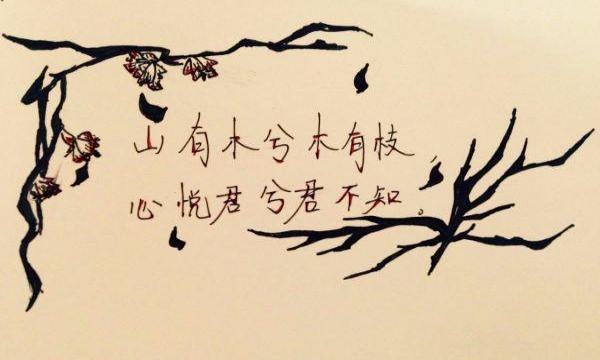 山有木兮木有枝，
心悦君兮君不知。